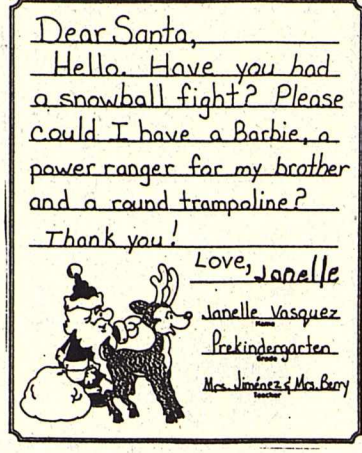 Dear Santa,
Hello. Have you had
a snowball fight? Please
could I have a Barbie, a
power ranger for my brother
and a round trampoline?
Thank you!
Love, Janelle
Janelle Vasquez
Name
Prekindergarten
Grade
Mrs. Jiménez & Mrs. Berry
Teacher